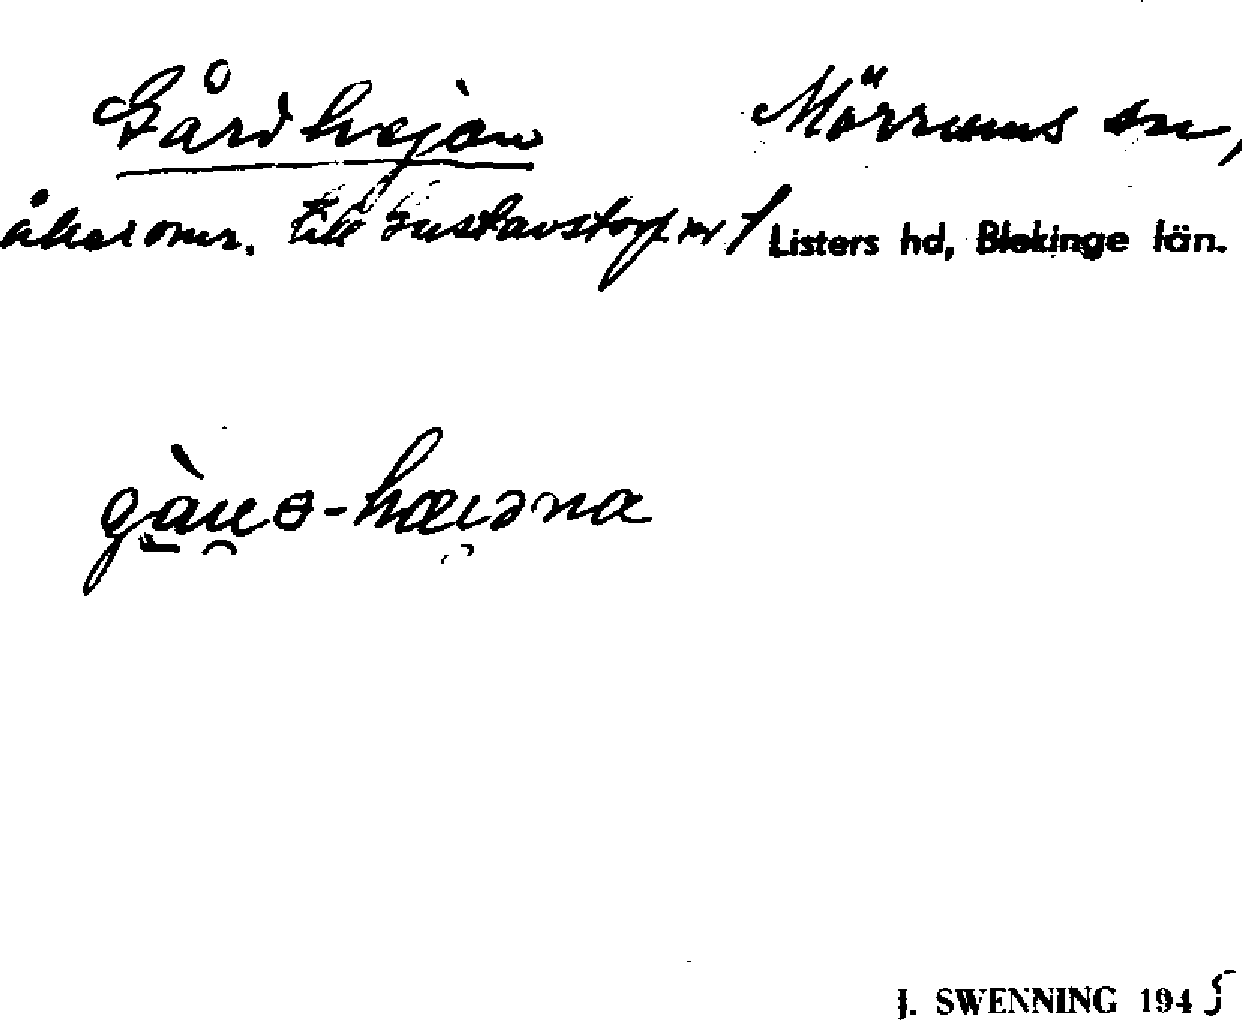 Gårdhejan Mörrums sn,
åkeromr. till Gustavstorp nr 1 Listers hd, Blekinge län.
J. SWENNING 1945